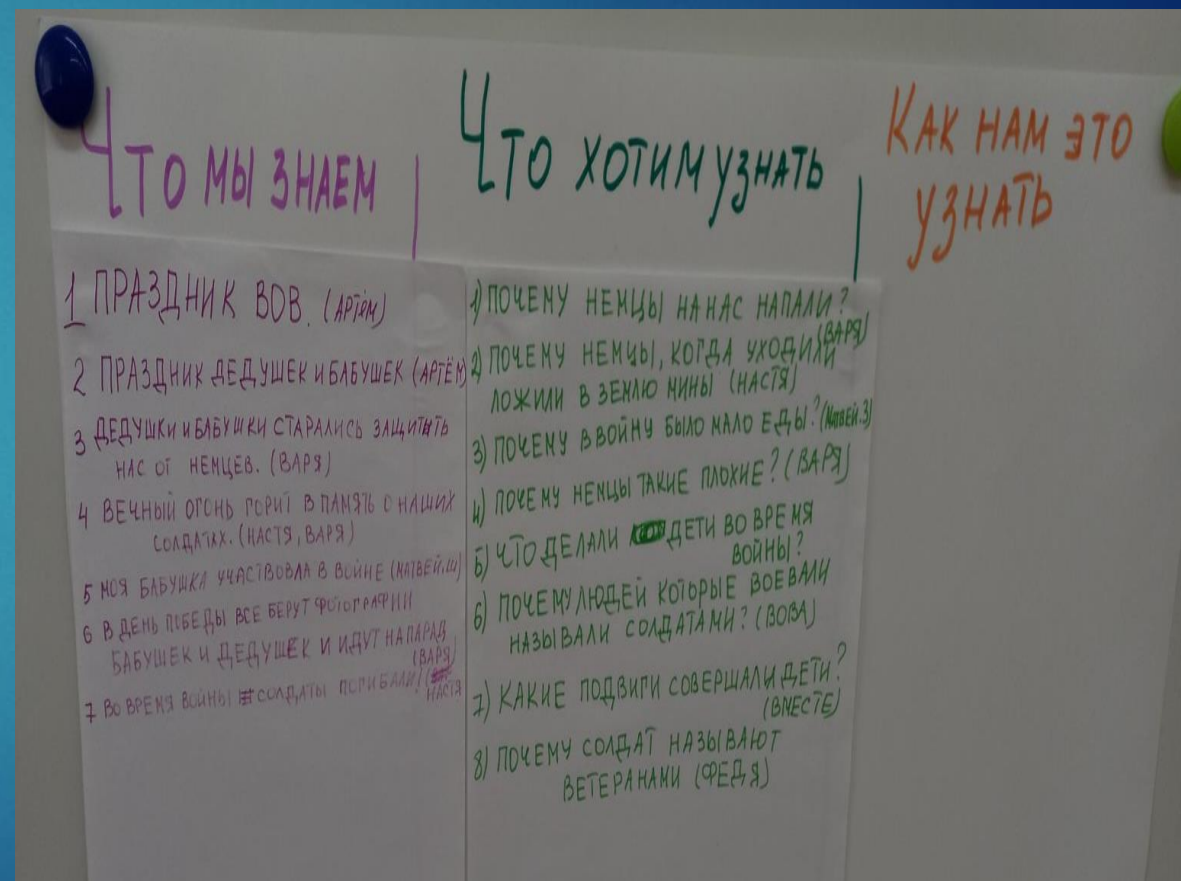 ЧТО МЫ ЗНАЕМ
1 ПРАЗДНИК ВОВ. (АРТЁМ)
2 ПРАЗДНИК ДЕДУШЕК И БАБУШЕК (АРТЁМ)
3 ДЕДУШКИ И БАБУШКИ СТАРАЛИСЬ ЗАЩИТИТЬ
НАС ОТ НЕМЦЕВ. (ВАРЯ)
4 ВЕЧНЫЙ ОГОНЬ ГОРИТ В ПАМЯТЬ О НАШИХ
СОЛДАТАХ. (НАСТЯ, ВАРЯ)
5 МОЯ БАБУШКА УЧАСТВОВЛА В ВОЙНЕ (МАТВЕЙ.Ш)
6 В ДЕНЬ ПОБЕДЫ ВСЕ БЕРУТ ФОТОГРАФИИ
БАБУШЕК И ДЕДУШЕК И ИДУТ НА ПАРАД
(ВАРЯ)
7 ВО ВРЕМЯ ВОЙНЫ СОЛДАТЫ ПОГИБАЛИ. (
НАСТЯ
ЧТО ХОТИМ УЗНАТЬ
1) ПОЧЕМУ НЕМЦЫ НА НАС НАПАЛИ?
(ВАРЯ)
2) ПОЧЕМУ НЕМЦЫ, КОГДА УХОДИЛИ
ЛОЖИЛИ В ЗЕМЛЮ МИНЫ (НАСТЯ)
3) ПОЧЕМУ В ВОЙНУ БЫЛО МАЛО ЕДЫ? (МАТВЕЙ.З)
4) ПОЧЕМУ НЕМЦЫ ТАКИЕ ПЛОХИЕ? (ВАРЯ)
5) ЧТО ДЕЛАЛИ ДЕТИ ВО ВРЕМЯ
ВОЙНЫ?
6) ПОЧЕМУ ЛЮДЕЙ КОТОРЫЕ ВОЕВАЛИ
НАЗЫВАЛИ СОЛДАТАМИ? (ВОВА)
7) КАКИЕ ПОДВИГИ СОВЕРШАЛИ ДЕТИ?
(ВМЕСТЕ)
8) ПОЧЕМУ СОЛДАТ НАЗЫВАЮТ
ВЕТЕРАНАМИ (ФЕДЯ)
КАК НАМ ЭТО
УЗНАТЬ